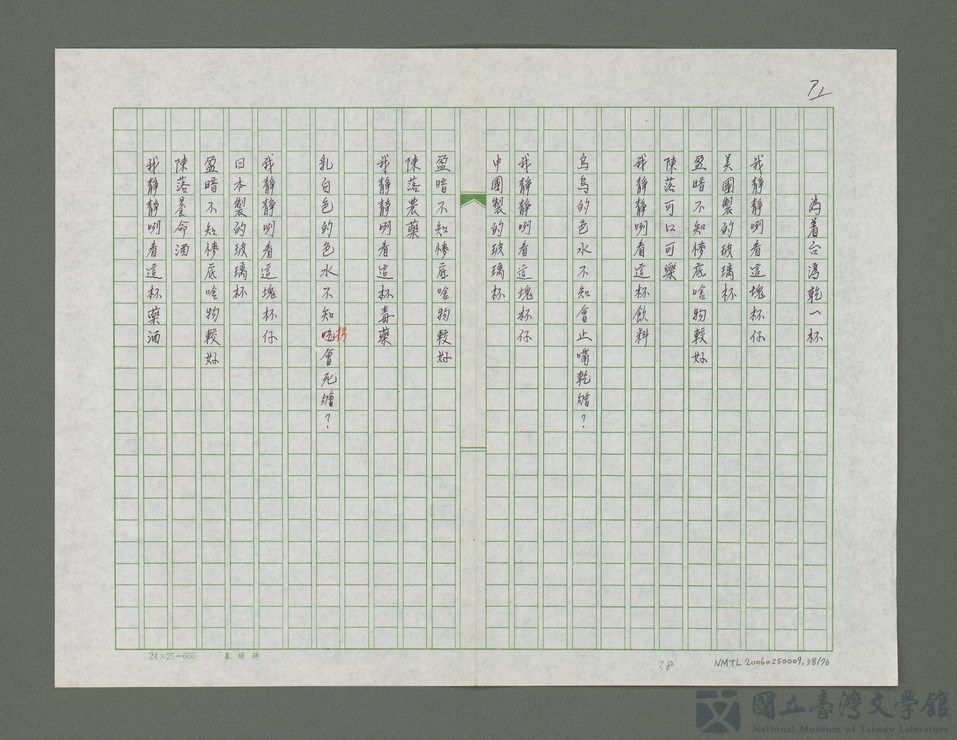 為着台灣乾一杯
我靜靜咧看這塊杯仔
美國製的玻璃杯
盈暗不知慘底啥物較好
陳落可口可樂
我靜靜咧看這杯飲料
烏烏的色水不知會止嘴乾𣍐？
我靜靜咧看這塊杯仔
中國製的玻璃杯
盈暗不知慘底啥物較好
陳落農藥
我靜靜咧看這杯毒藥
乳白色的色水不知吃會死𣍐？
我靜靜咧看這塊杯仔
日本製的玻璃杯
盈暗不知慘底啥物較好
陳落養命酒
我靜靜咧看這杯藥酒
24×25=600
38
NMTL 20060250009.38/70
國立臺灣文學館
National Museum of Taiwan Literature